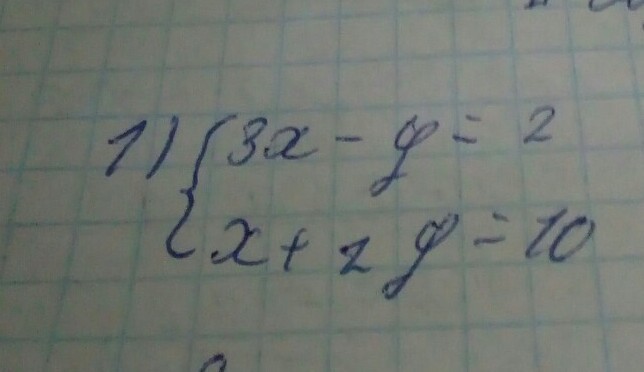 1) { 3x - y = 2
x + 2y = 10